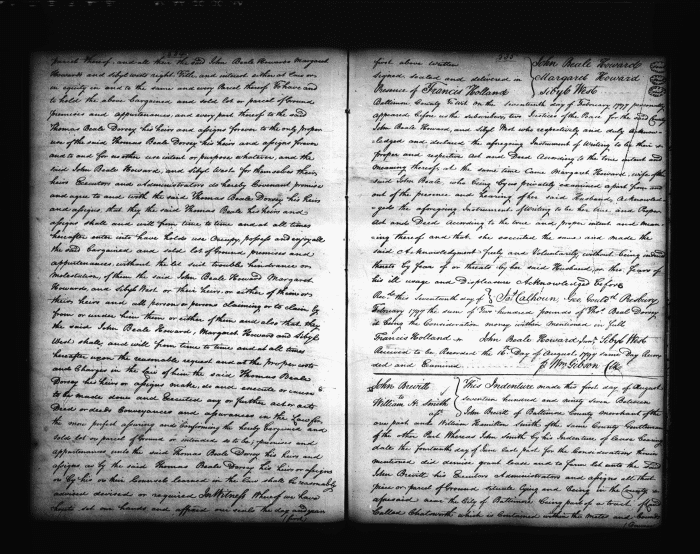 parcel thereof: and all them the said John Beale Howard Margaret
Howard and Sibyl West right title and interest either at law or
in equity in and to the same and every Parcel thereof To have and
to hold the above bargained and sold lot or parcel of Ground
premises and appurtenances and every part thereof to the said
Thomas Beale Dorsey his heirs and assigns forever to the only proper
use of the said Thomas Beale Dorsey his heirs and assigns forever
and to and for no other use intent or purpose whatever, and the
said John Beale Howard, and Sibyl West for themselves their
heirs Executors and Administrators do hereby Covenant promise
and agree to and with the said Thomas Beale Dorsey his heirs
and assigns that they the said Thomas Beale his heirs and
assigns shall and will from time to time and at all times
hereafter enter into have hold use Occupy possess and enjoy all
the said bargained and sold lot of Ground premises and
appurtenances without the let suit trouble hindrance or
Molestation of them the said John Beale Howard Margaret
Howard, and Sibyl West or their heirs, or either of them or
their heirs and all person or persons claiming or to claim by
from or under him them or either of them and also that they
the said John Beale Howard, Margaret Howard and Sibyl
West shall, and will from time to time and at all times
hereafter upon the reasonable request and at the proper costs
and Charges in the Law of him the said Thomas Beale
Dorsey his heirs or assigns make, do and execute or cause
to be made done and Executed any or further act or acts
Deed or deeds Conveyances and assurances in the Law for
the more perfect assuring and confirming the hereby bargained and
Sold lot or parcel of Ground or intended so to be, premises and
appurtenances unto the said Thomas Beale Dorsey his heirs and
assigns as by the said Thomas Beale Dorsey his heirs or assigns
or by his or their Counsel learned in the law shall be reasonably
advised devised or required In Witness Whereof we have
hereto set our hands and affixed our seals the day and year
(first)
first above written
John Beale Howard
signed sealed and delivered in
Margaret Howard
Presence of Francis Holland
Sibyl West
Baltimore County to wit on the seventeenth day of February 1797 personally
appeared before us the subscribers, two Justices of the Peace for the said County
John Beale Howard, and Sibyl West who respectively and duly acknow
ledged and declared the aforegoing Instrument of Writing to be their
proper and respective Act and Deed According to the true intent and
meaning thereof at the same time Came Margaret Howard, wife of the
said John Beale who being by us privately examined apart from and
out of the presence and hearing of her said Husband, Acknowled
=geth the aforegoing Instrument of Writing to be her true and Proper
Act and Deed According to the true and proper intent and mean
ing thereof and that she executed the same and made the
said Acknowledgment freely and Voluntarily without being induced
thereto by fear of or threats by her said Husband, or thro' fears of
his ill usage and Displeasure Acknowledged before
Recd. this seventeenth day of Jas. Calhoun, Geo. Gouldh. Presbury
February 1797 the sum of two hundred pounds of Thos. Beal Dorsey
it being the Consideration money within mentioned in full
Francis Holland John Beale Howard Sibyl West
Received to be Recorded the 16th. day of August 1797 same Day Recor
ded and Examined Wm Gibson Clk
John Brevitt
to
William H. Smith
This Indenture made this first day of August
seventeen hundred and ninety seven Between
John Brevitt of Baltimore County merchant of the
one part and William Hamilton Smith of the same County Gentleman
of the other Part Whereas John Smith by his Indenture of Lease bearing
date the fourteenth day of June last past for the Consideration therein
mentioned did demise grant lease and to farm let unto the said
John Brevitt his Executors Administrators and assigns all that
piece or parcel of Ground situate lying and being in the County
aforesaid near the City of Baltimore being part of a tract of land
called Chatsworth which is Contained within the metes and bounds